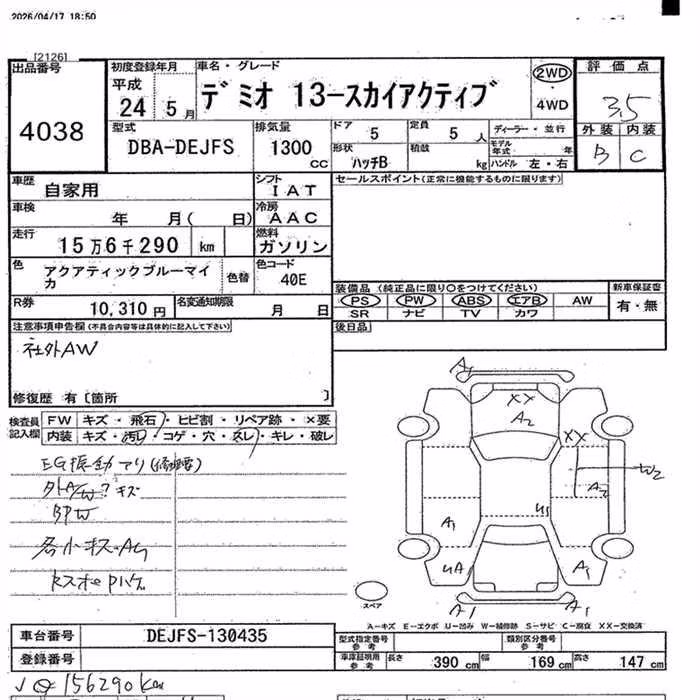 2026/04/17 18:50
[2126]
出品番号 初度登録年月 車名・グレード 評価点
4038 平成 24 5月 デミオ 13-スカイアクティブ 2WD 4WD 3.5
外装 内装
B C
型式 排気量 ドア 5 定員 5 人 ディーラー・並行
DBA-DEJFS 1300 CC 形状 ハッチB 積載 kg モデル年式 年
ハンドル 左・右
車歴 自家用 シフト IAT セールスポイント(正常に機能するものに限ります)
車検 年 月( 日) 冷房 AAC
走行 15万6千290 km 燃料 ガソリン
色 アクアティックブルーマイカ 色替 色コード 40E
装備品 (純正品に限り○をつけてください) 新車保証書
PS PW ABS エアB AW 有・無
SR ナビ TV カワ
R券 10,310円 名変通知期限 月 日
後日品
注意事項申告欄(不具合内容等は具体的に記入して下さい)
社外AW
修復歴 有〔箇所 〕
検査員記入欄 FW キズ・飛石・ヒビ割・リペア跡・×要
内装 キズ・汚レ・コゲ・穴・スレ・キレ・破レ
EG振動アリ
外A/W? キズ
各小キズ・
A1
XX
A2
XX
W2
A2
A1
U1
UA1
A1
スペア
A1
A1
A-キズ E-エクボ U-凹み W-補修跡 S-サビ C-腐食 XX-交換済
車台番号 DEJFS-130435 型式指定番号 参考 類別区分番号 参考
登録番号 車庫証明用 参考 長さ 390 cm 幅 169 cm 高さ 147 cm
156290km